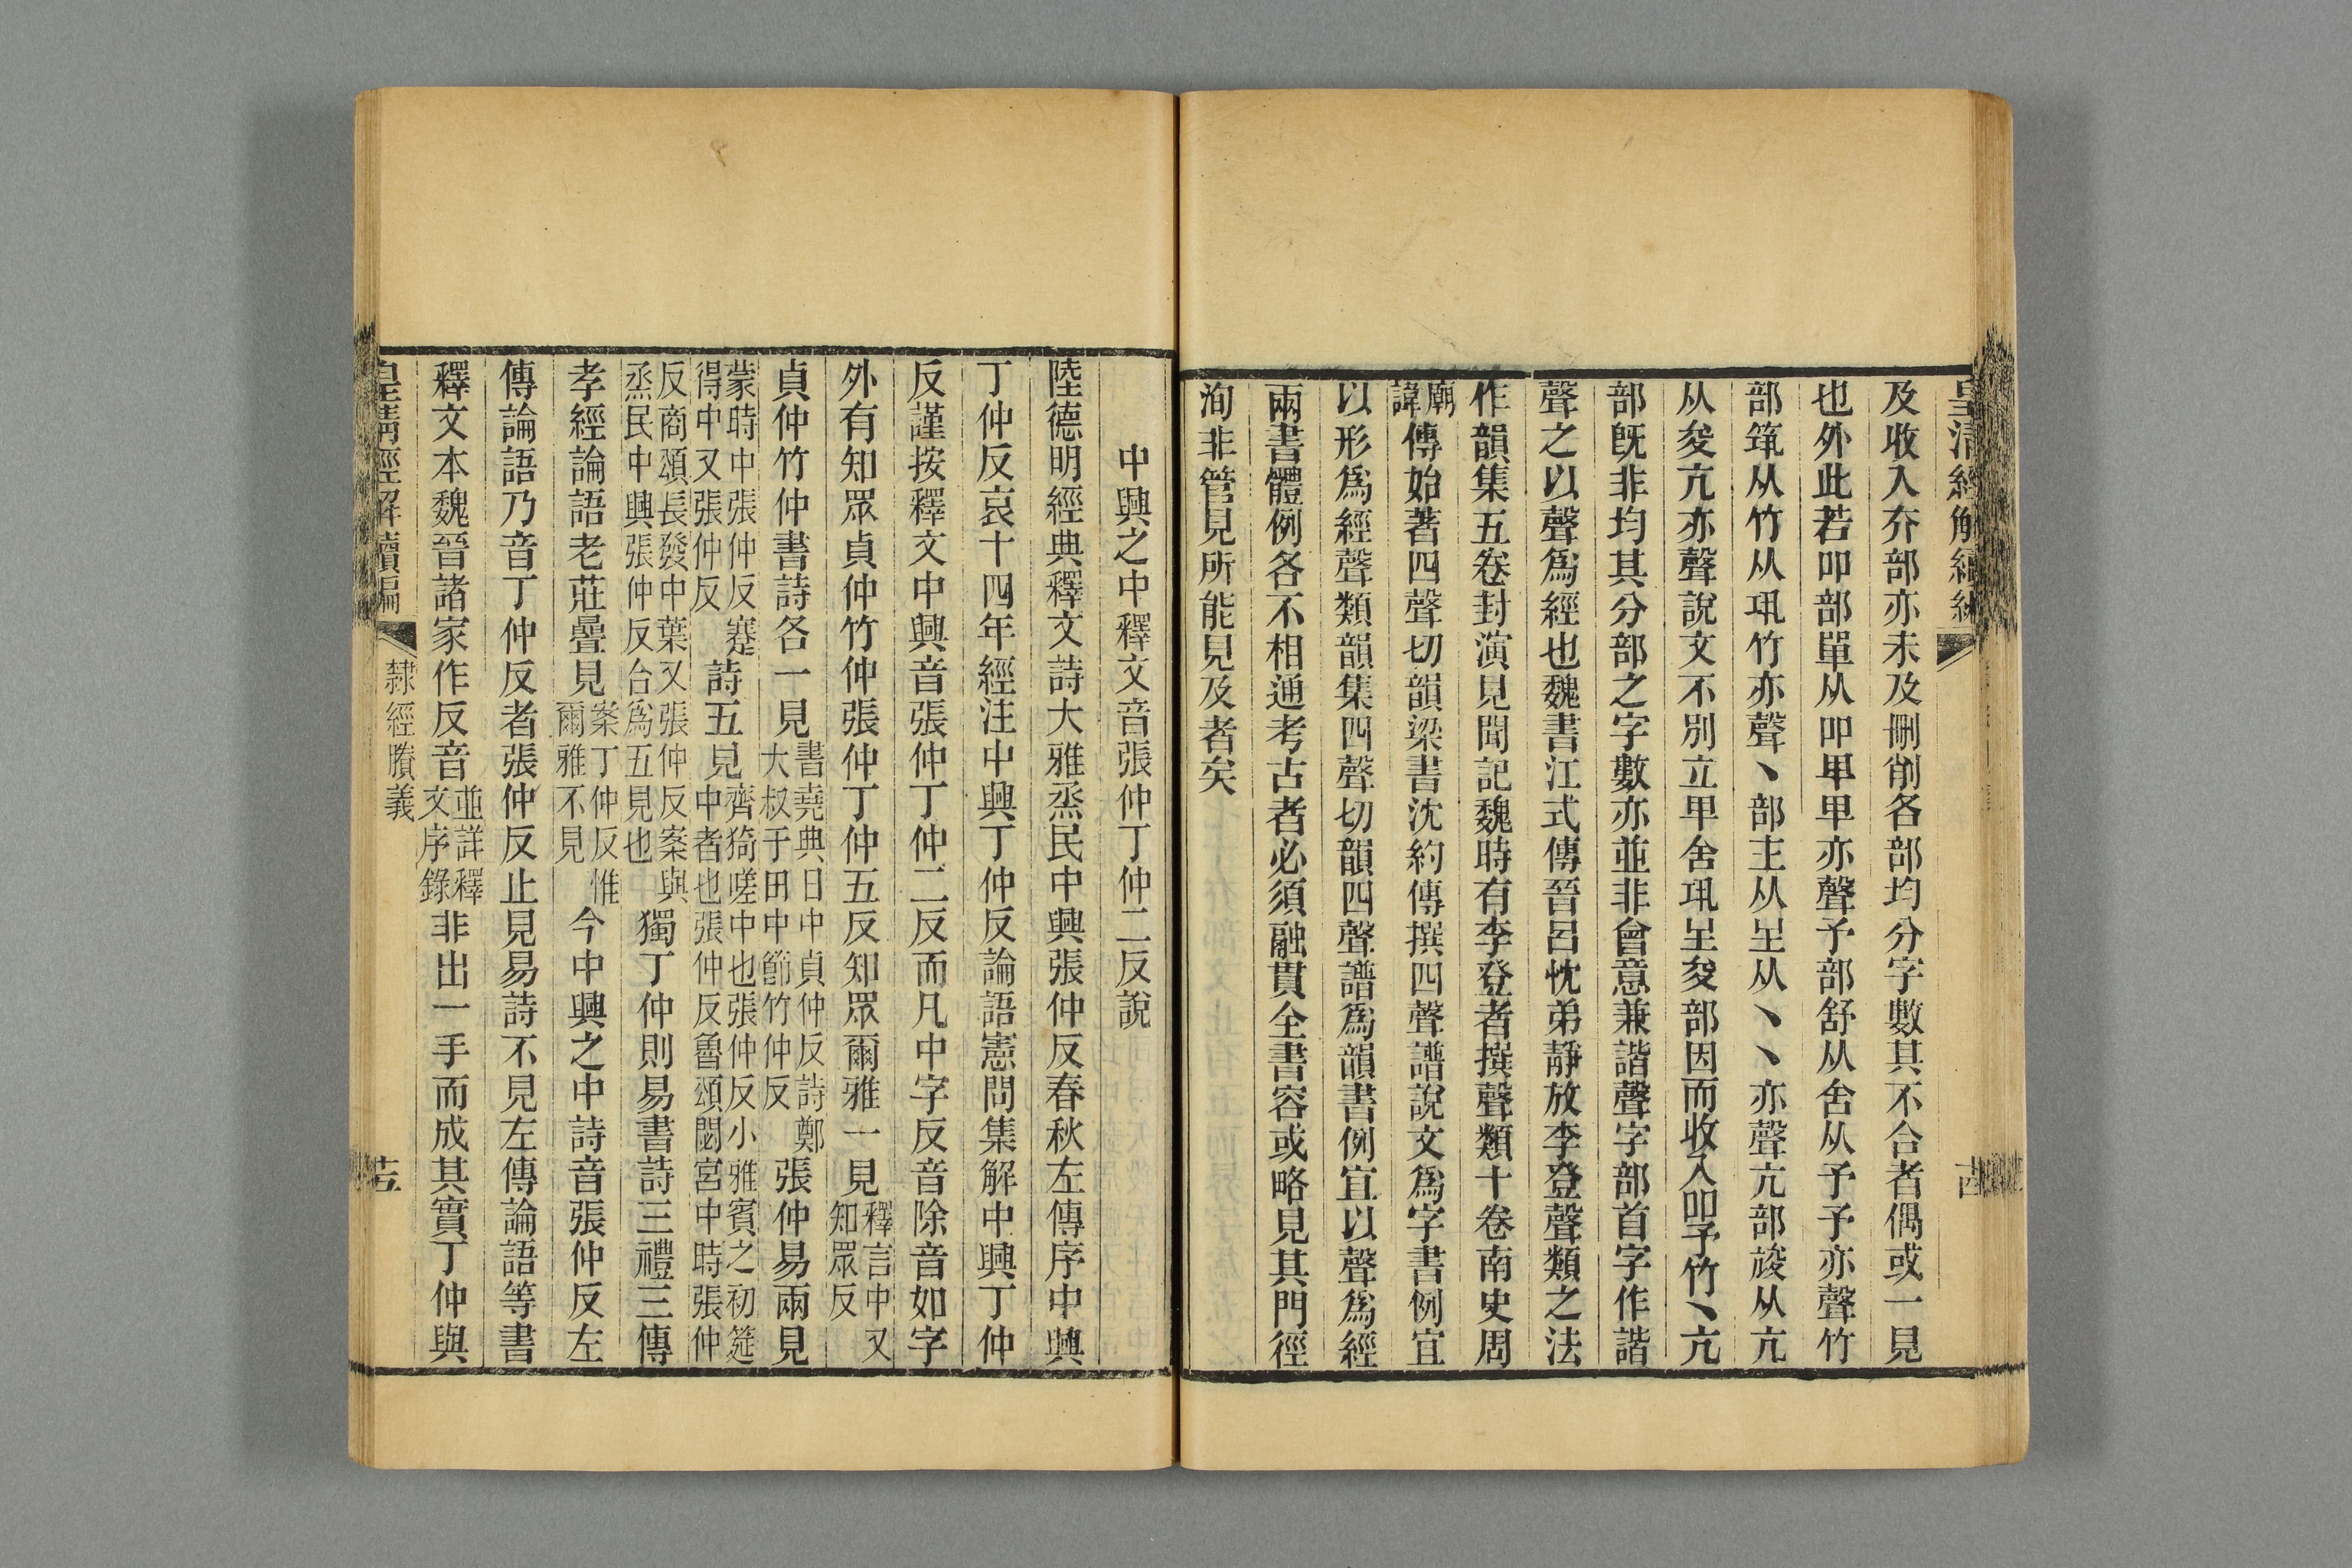 皇清經解續編
及收入夰部亦未及刪削各部均分字數其不合者偶或一見
也外此若吅部單从吅甲甲亦聲予部舒从舍从予予亦聲竹
部筑从竹从巩竹亦聲丶部主从𡈼从丶丶亦聲亢部㚇从亢
从夋亢亦聲說文不別立甲舍巩𡈼夋部因而收入吅予竹丶亢
部旣非均其分部之字數亦並非會意兼諧聲字部首字作諧
聲之以聲爲經也魏書江式傳晉呂忱弟靜放李登聲類之法
作韻集五卷封演見聞記魏時有李登者撰聲類十卷南史周
廟諱傳始著四聲切韻梁書沈約傳撰四聲譜說文爲字書例宜
以形爲經聲類韻集四聲切韻四聲譜爲韻書例宜以聲爲經
兩書體例各不相通考古者必須融貫全書容或略見其門徑
洵非管見所能見及者矣
中興之中釋文音張仲丁仲二反說
陸德明經典釋文詩大雅烝民中興張仲反春秋左傳序中興
丁仲反哀十四年經注中興丁仲反論語憲問集解中興丁仲
反謹按釋文中興音張仲丁仲二反而凡中字反音除音如字
外有知眾貞仲竹仲張仲丁仲五反知眾爾雅一見釋言中又知眾反
貞仲竹仲書詩各一見書堯典日中貞仲反詩鄭大叔于田中節竹仲反張仲易兩見
蒙時中張仲反蹇得中又張仲反詩五見齊猗嗟中也張仲反小雅賓之初筵中者也張仲反魯頌閟宮中時張仲
反商頌長發中葉又張仲反案與烝民中興張仲反台爲五見也獨丁仲則易書詩三禮三傳
孝經論語老莊疊見案丁仲反惟爾雅不見今中興之中詩音張仲反左
傳論語乃音丁仲反者張仲反止見易詩不見左傳論語等書
釋文本魏晉諸家作反音並詳釋文序錄非出一手而成其實丁仲與
皇清經解續編
隸經賸義